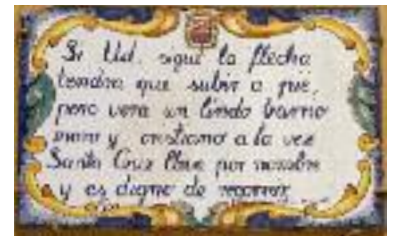 Si Ud. sigue la flecha
tendra que subir a pie,
pero vera un lindo barrio
moro y cristiano a la vez
Santa Cruz lleva por nombre
y es digno de recorrer